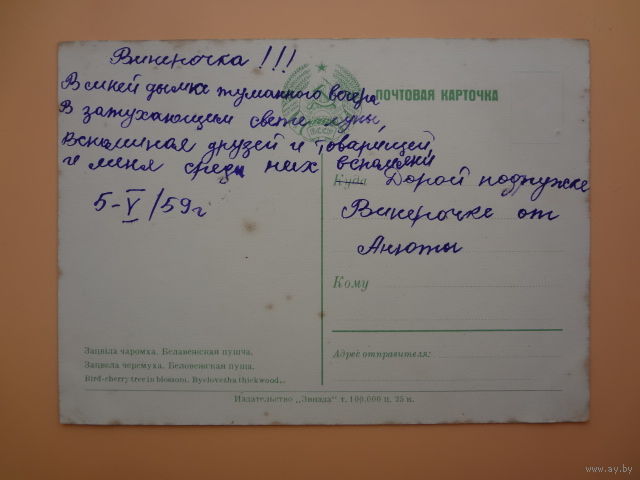 Винерочка !!!
В синей дымке туманного вечера,
В затухающем свете луны,
Вспоминая друзей и товарищей,
и меня среди них вспомяни
5-V/59г
БССР
ПОЧТОВАЯ КАРТОЧКА
Куда Дорой подружке
Винерочке от
Анюты
Кому
Адрес отправителя:
Зацвіла чаромха. Белавежская пушча.
Зацвела черемуха. Беловежская пуща.
Bird-cherry tree in blossom. Byelovezha thickwood.
Издательство „Звязда" т. 100.000 ц. 25 к.
www.ay.by